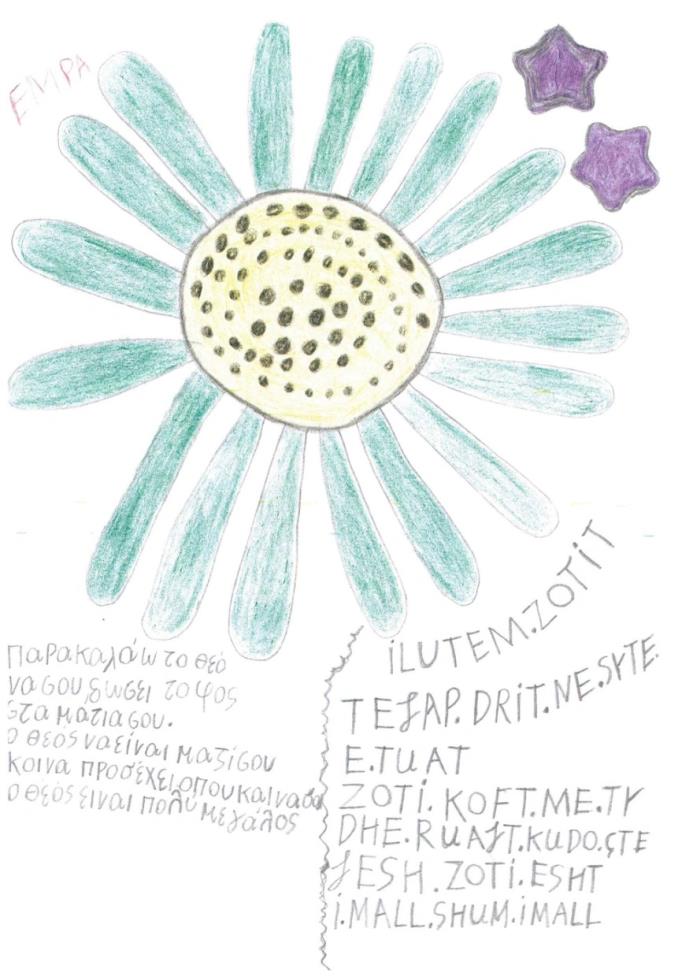 ΕΜΡΑ
Παρακαλάω το θεό
να σου δωσει το φος
στα ματια σου.
ο θεός να είναι μαζί σου
κοι να προσέχει οπου και να
ο θεός ειναι πολυ μεγάλος
iLUTEM.ZOTiT
TEJAP.DRiT.NE.SYTE.
E.TUAT
ZOTi.KOFT.ME.TY
DHE.RUAJT.KUDO.ÇTE
JESH.ZOTi.ESHT
i.MALL.SHUM.iMALL